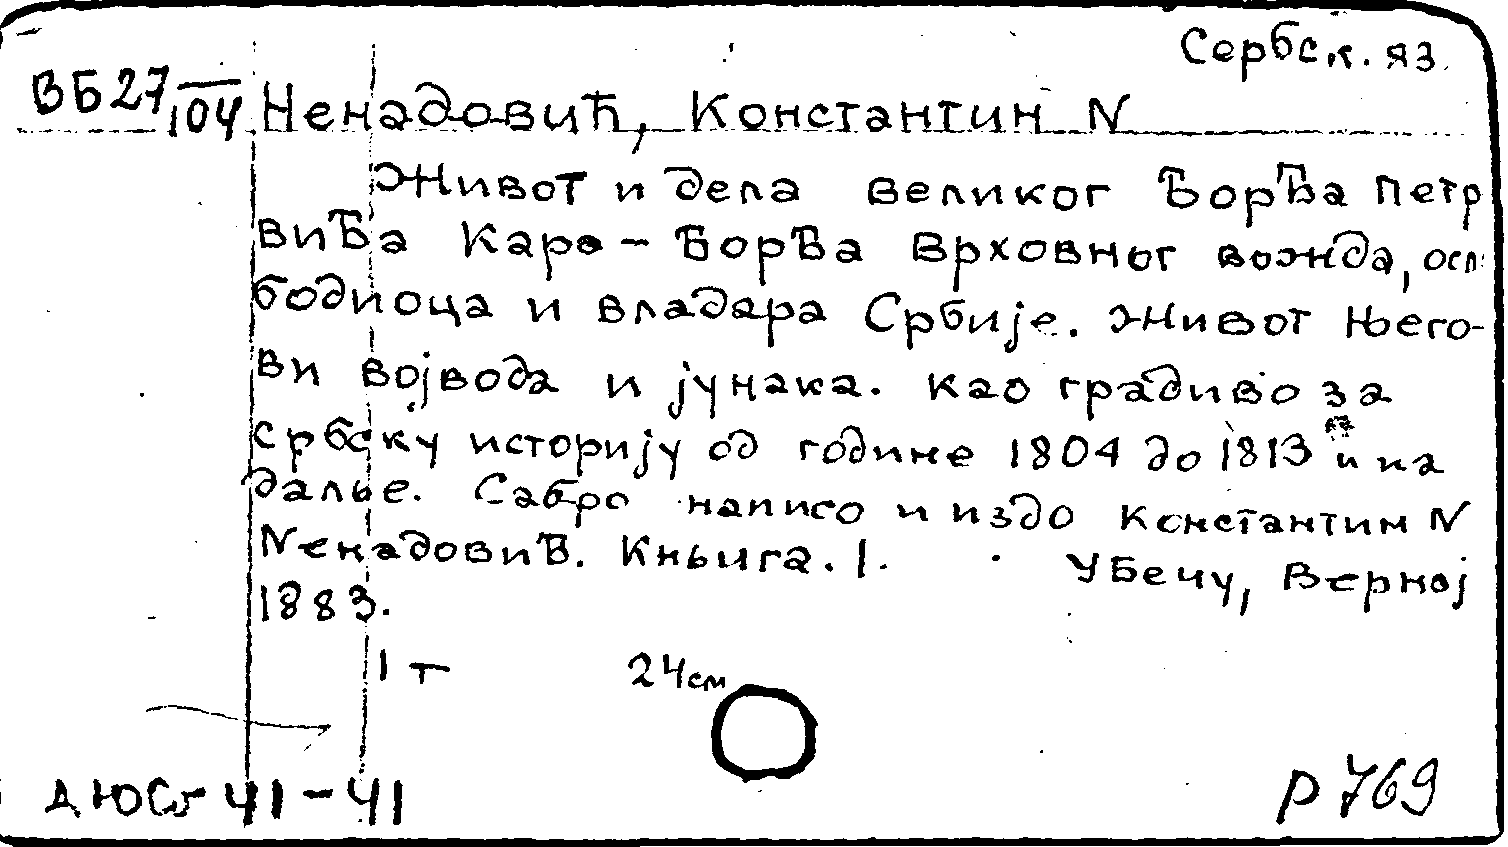 Сербск. яз.
ВБ27/104 Ненадовић, Константин N
Живот и дела великог Ђорђа Петр
виЂа Кара-Ђорђа Врховног вожда, осл
бодиоца и владара Србије. Живот њего-
ви војвода и јунака. Као градиво за
србску историју од године 1804 до 1813 и на
даље. Сабро написо и издо Константин N
NенадовиЂ. Књига. 1. У Бечу, Верној
1883.
1 т 24см
41-41
Р 769